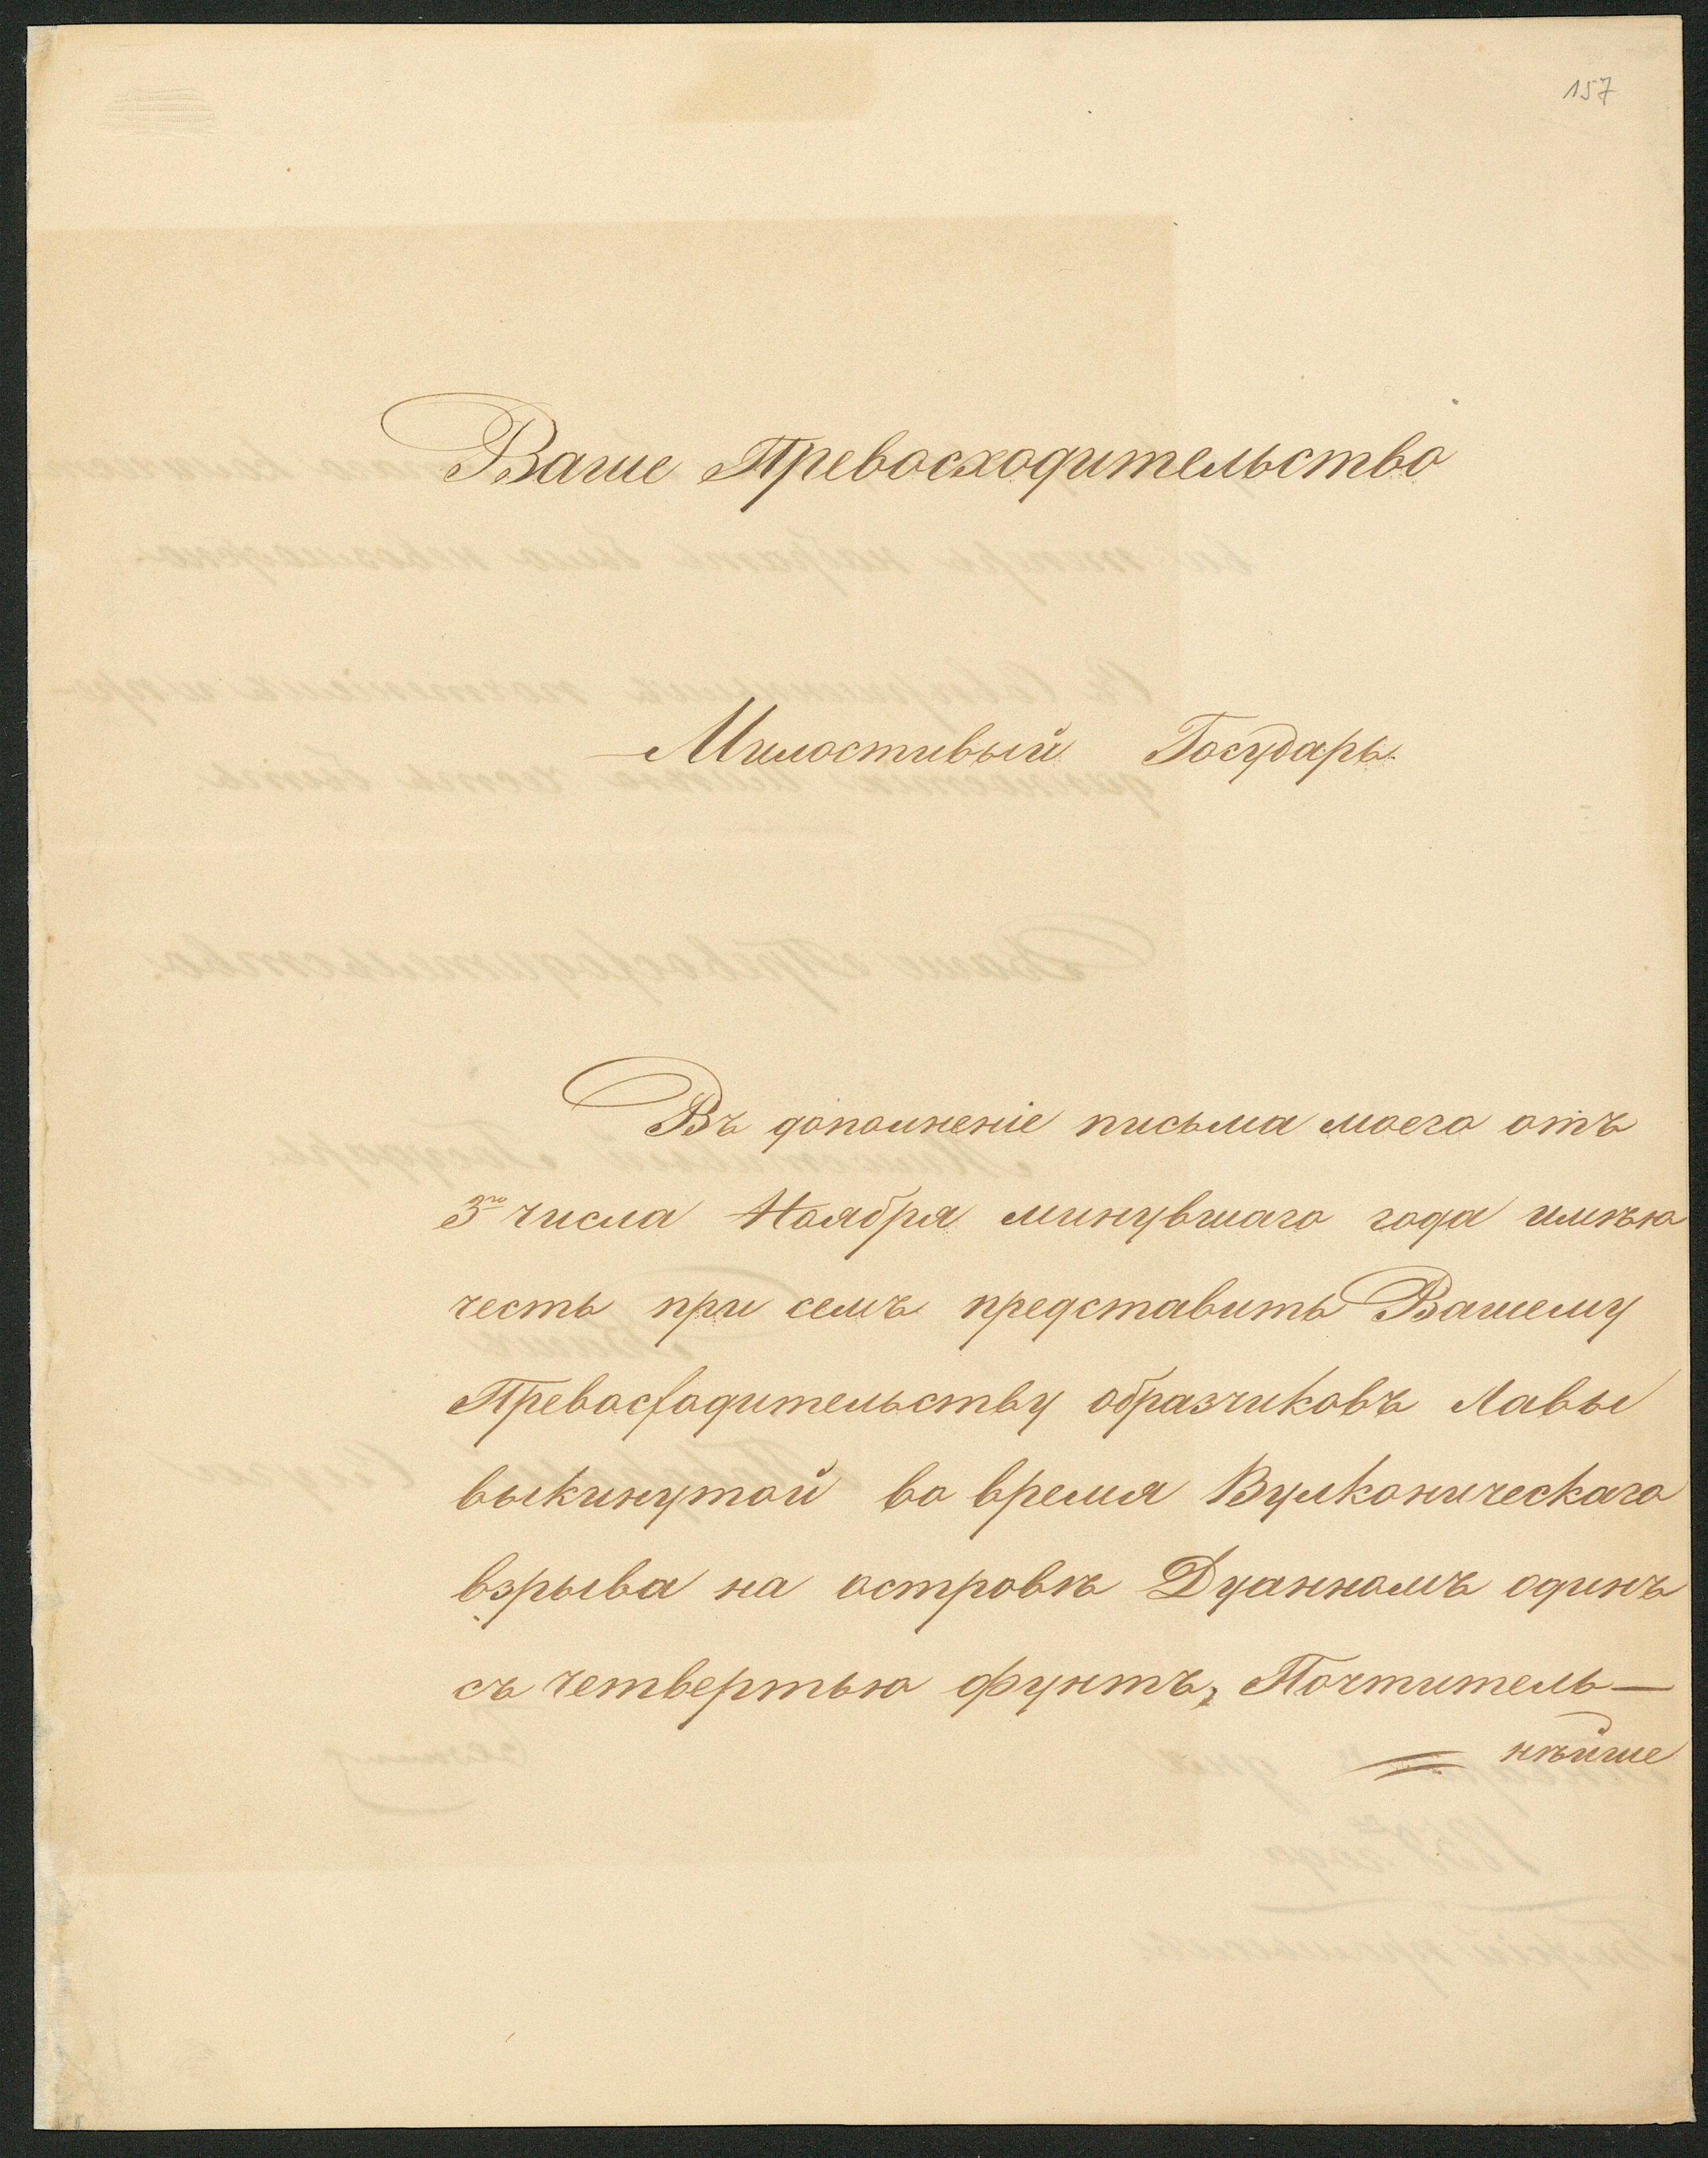 157
Ваше Превосходительство
Милостивый Государь.
Въ дополненіе письма моего отъ
3го числа Ноября минувшаго года имѣю
честь при семъ представить Вашему
Превосходительству образчиковъ Лавы
выкинутой во время Вулконическаго
взрыва на островѣ Дуанномъ одинъ
съ четвертью фунтъ, Почтитель—
нѣйше